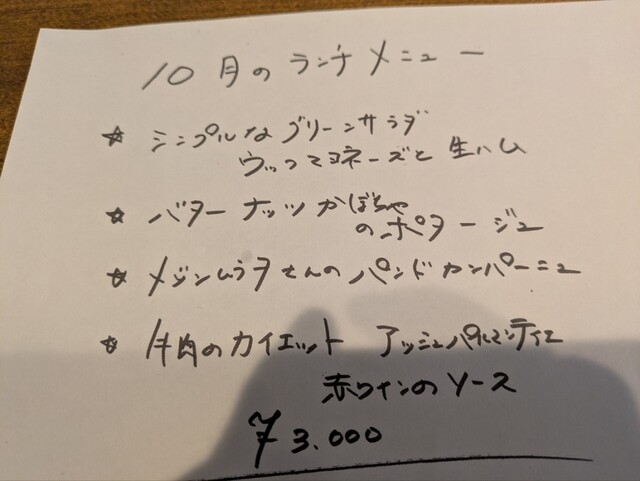 10月のランチメニュー
☆ シンプルなグリーンサラダ
ウッフマヨネーズと生ハム
☆ バターナッツかぼちゃ
のポタージュ
☆ メゾンムラタさんのパンドカンパーニュ
☆ 牛肉のカイエット アッシュパルマンティエ
赤ワインのソース
¥3.000